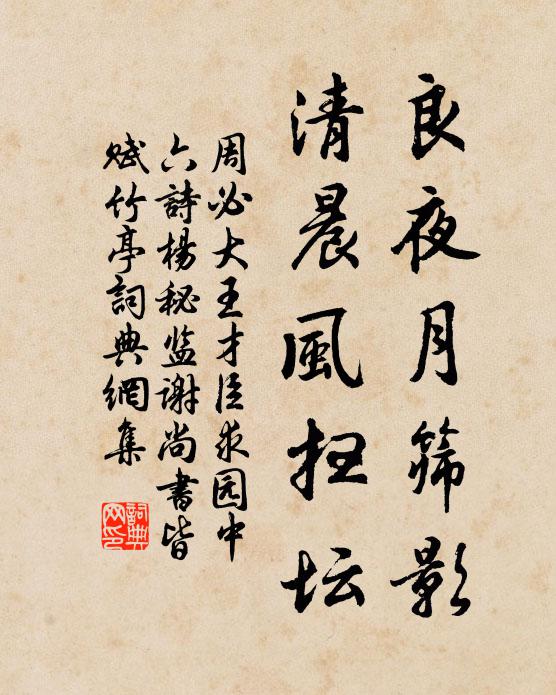 良夜月筛影
清晨風扫坛
周必大王才臣求园中
六詩楊秘监谢尚書皆
赋竹亭詞典網集
詞典
网印